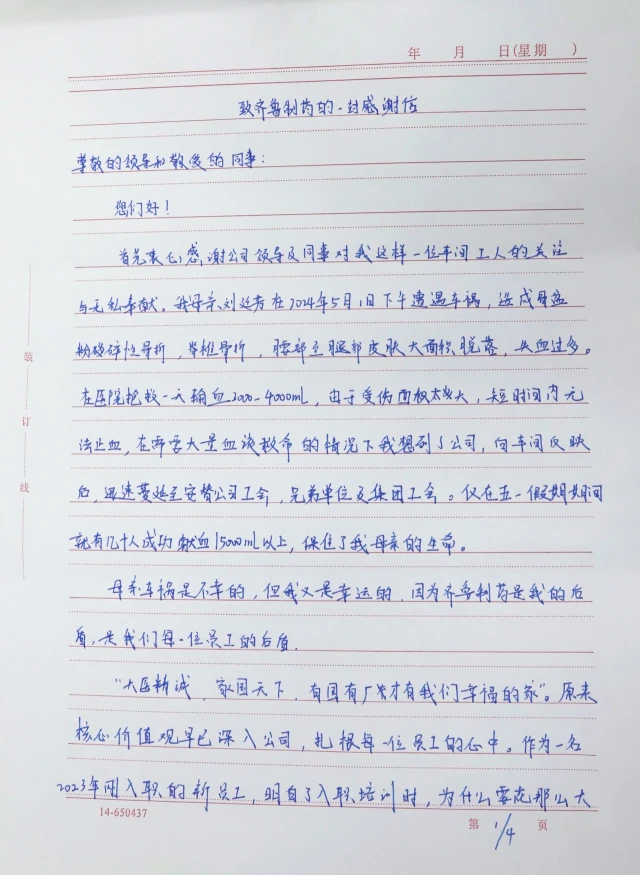 年 月 日(星期 )
致齐鲁制药的一封感谢信
尊敬的领导和敬爱的同事:
您们好!
首先衷心感谢公司领导及同事对我这样一位车间工人的关注
与无私奉献。我母亲刘延芳在2024年5月1日下午遭遇车祸,造成骨盆
粉碎性骨折,脊椎骨折,腰部至腿部皮肤大面积脱落,失血过多。
在医院抢救一天输血2000-4000mL,由于受伤面积太大,短时间内无
法止血,在需要大量血液救命的情况下我想到了公司,向车间反映
后,迅速蔓延至安替公司工会,兄弟单位及集团工会。仅在五一假期期间
就有几十人成功献血15000mL以上,保住了我母亲的生命。
母亲车祸是不幸的,但我又是幸运的,因为齐鲁制药是我的后
盾,是我们每一位员工的后盾.
"大医精诚,家国天下,有国有厂才有我们幸福的家"。原来
核心价值观早已深入公司,扎根每一位员工的心中。作为一名
2023年刚入职的新员工,明白了入职培训时,为什么要花那么大
装
订
线
14-650437
第 1/4 页